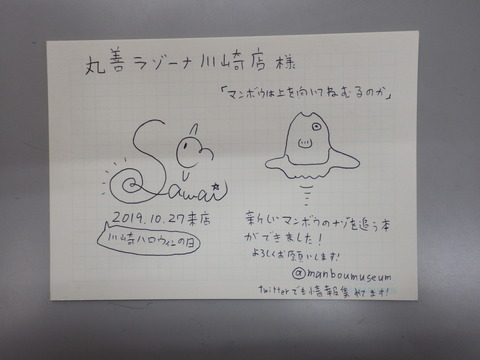 丸善ラゾーナ川崎店様
「マンボウは上を向いてねむるのか」
Sawai
2019.10.27来店
川崎ハロウィンの日
新しいマンボウのナゾを追う本
ができました!
よろしくお願いします!
@manboumuseum
twitterでも情報集めてます!